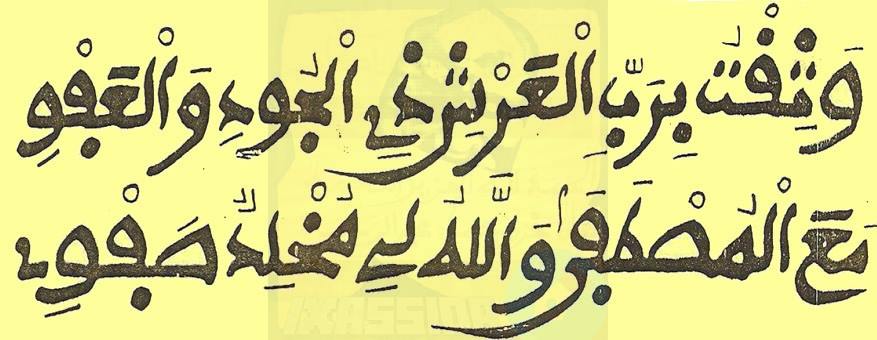 وَثِقْتُ بِرَبِّ الْعَرْشِ ذِي الْجُودِ وَالْعَفْوِ
مَعَ الْمُصْطَفَى وَاللَّهُ لِي مُخْلِدٌ صَفْوِي